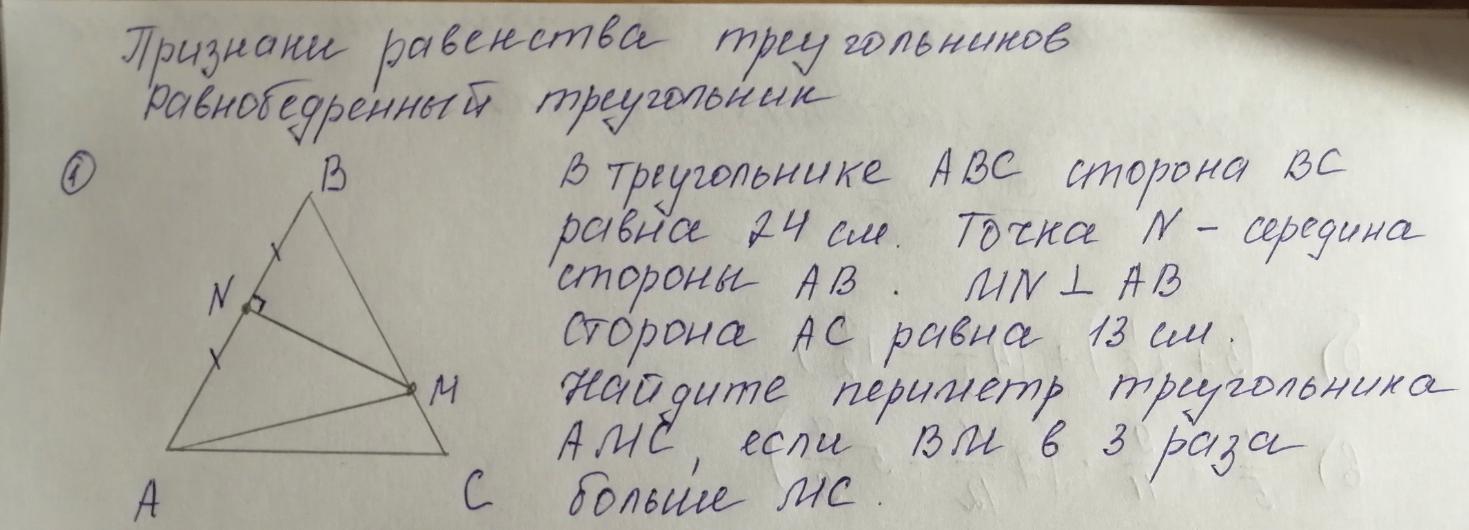 Признаки равенства треугольников
Равнобедренный треугольник
1
B
N
M
A
C
В треугольнике ABC сторона BC
равна 24 см. Точка N - середина
стороны AB. MN ⊥ AB
Сторона AC равна 13 см.
Найдите периметр треугольника
AMC, если BM в 3 раза
больше MC.